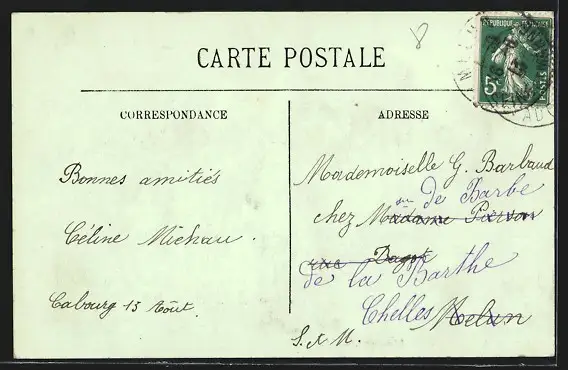 8
CARTE POSTALE
RÉPUBLIQUE FRANÇAISE
5c
POSTES
CORRESPONDANCE
ADRESSE
Bonnes amitiés
Céline Michau.
Cabourg 15 Août.
Mademoiselle G. Barbaud
de Barbe
chez Madame Pierron
rue Dagot
de la Barthe
Chelles Melun
S. & M.